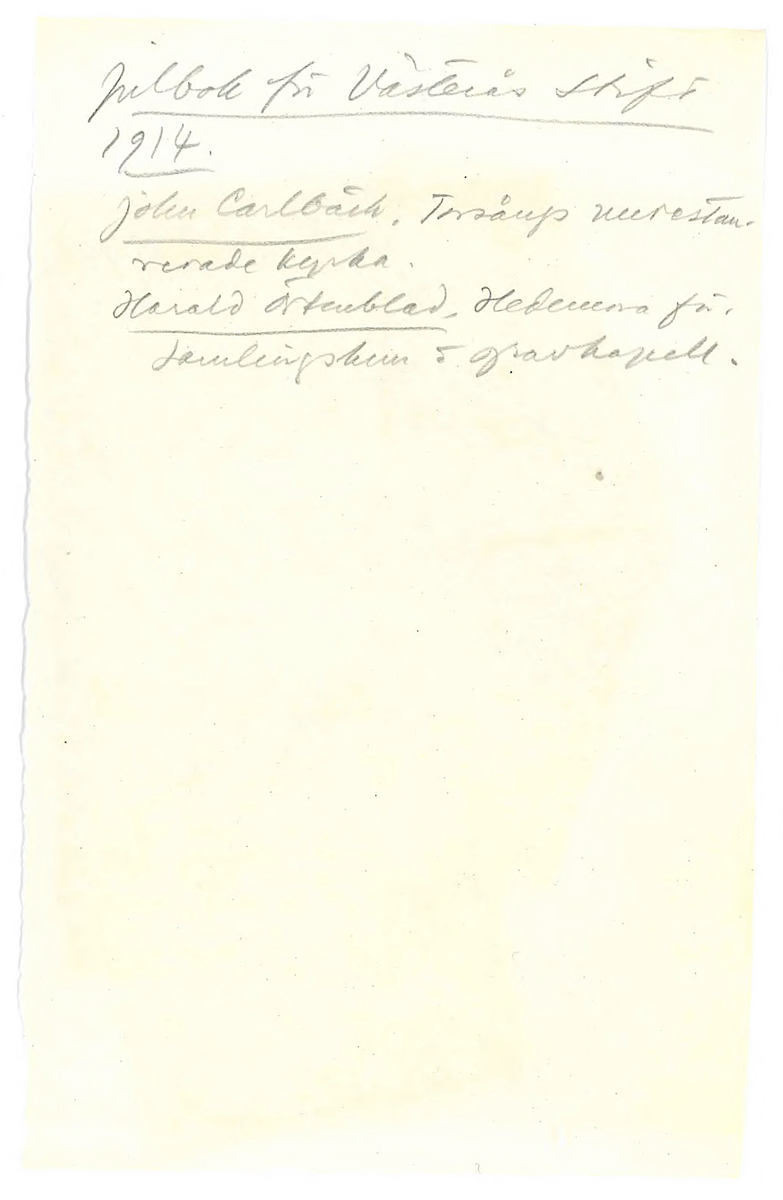 Julbok för Västerås Stift
1914.
John Carlbäck, Torsångs nurestau-
rerade kyrka.
Harald Örtenblad, Hedemora för.
samlingshem o gravkapell.